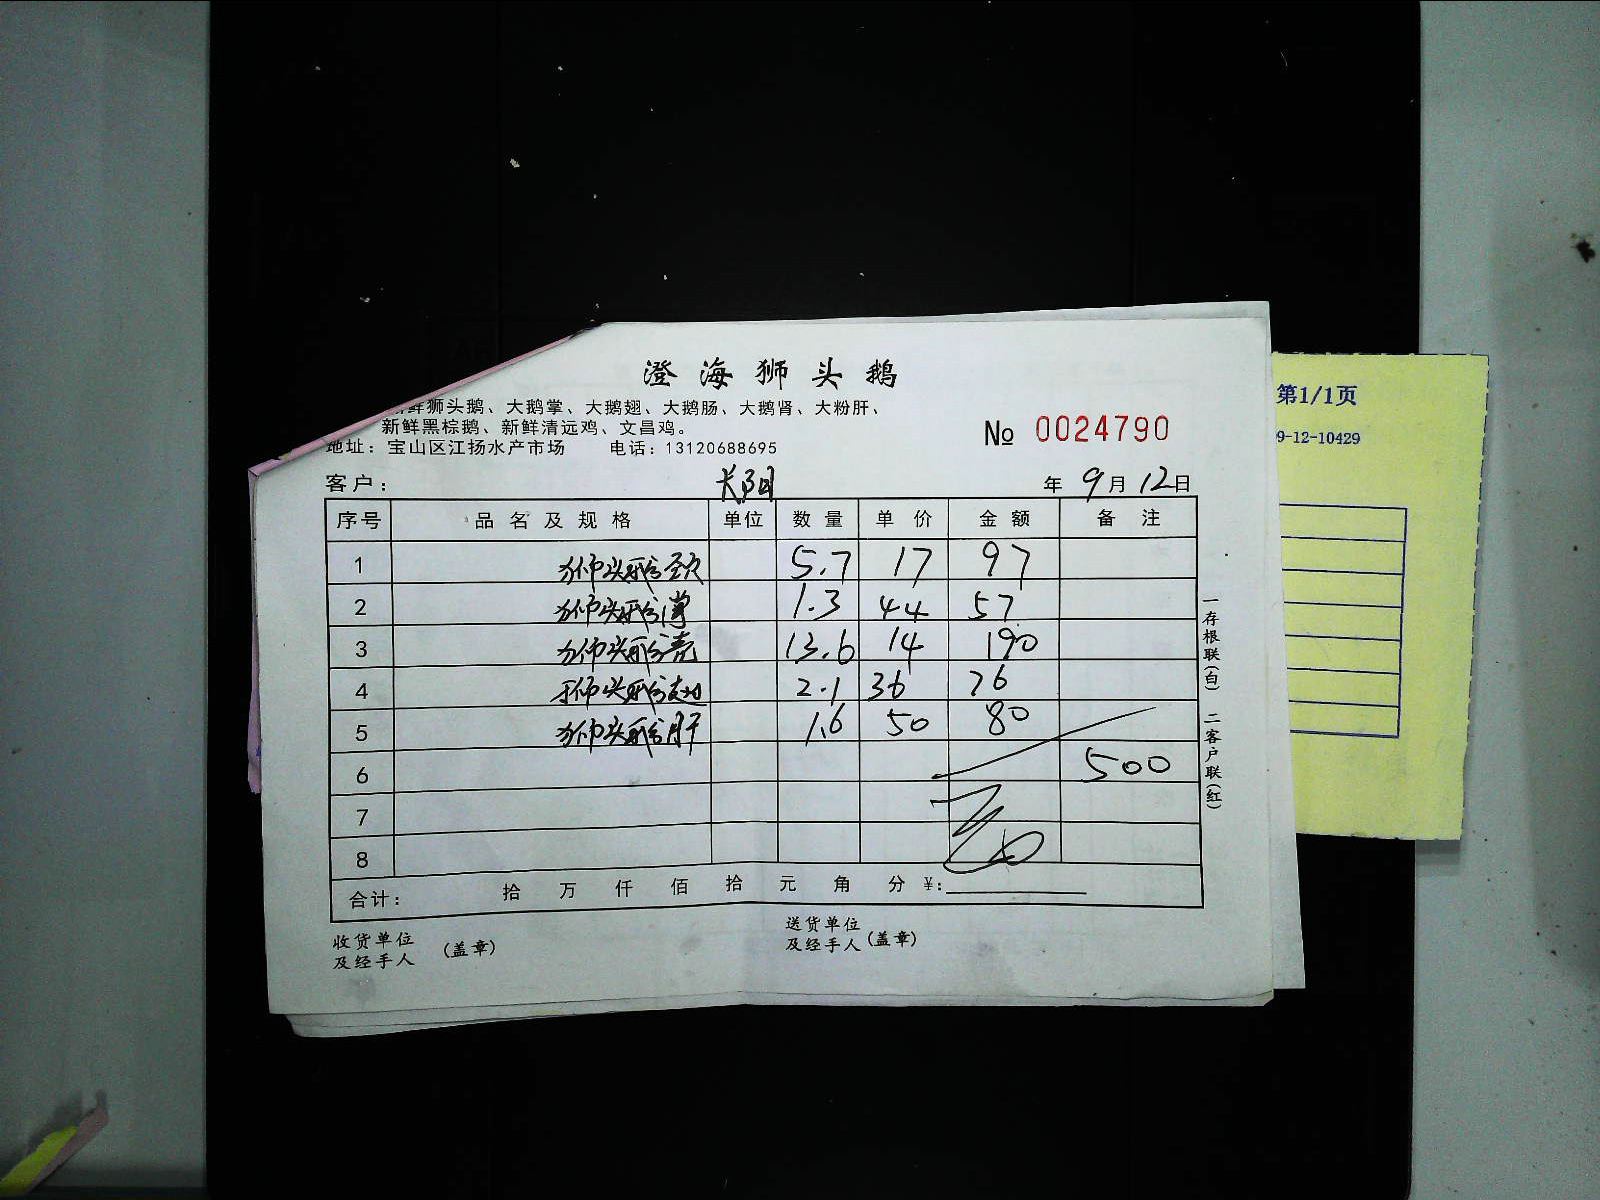 澄海狮头鹅
新鲜狮头鹅、大鹅掌、大鹅翅、大鹅肠、大鹅肾、大粉肝、
新鲜黑棕鹅、新鲜清远鸡、文昌鸡。
№ 0024790
地址：宝山区江扬水产市场 电话：13120688695
客户： 长阳 年 9月12日
序号 品名及规格 单位 数量 单价 金额 备注
1 狮头鹅颈 5.7 17 97
2 狮头鹅掌 1.3 44 57
3 狮头鹅壳 13.6 14 190
4 狮头鹅翅 2.1 36 76
5 狮头鹅肝 1.6 50 80
6 500
7
8
合计： 拾 万 仟 佰 拾 元 角 分 ¥:
收货单位
及经手人 (盖章)
送货单位
及经手人 (盖章)
一存根联(白) 二客户联(红)
第1/1页
9-12-10429